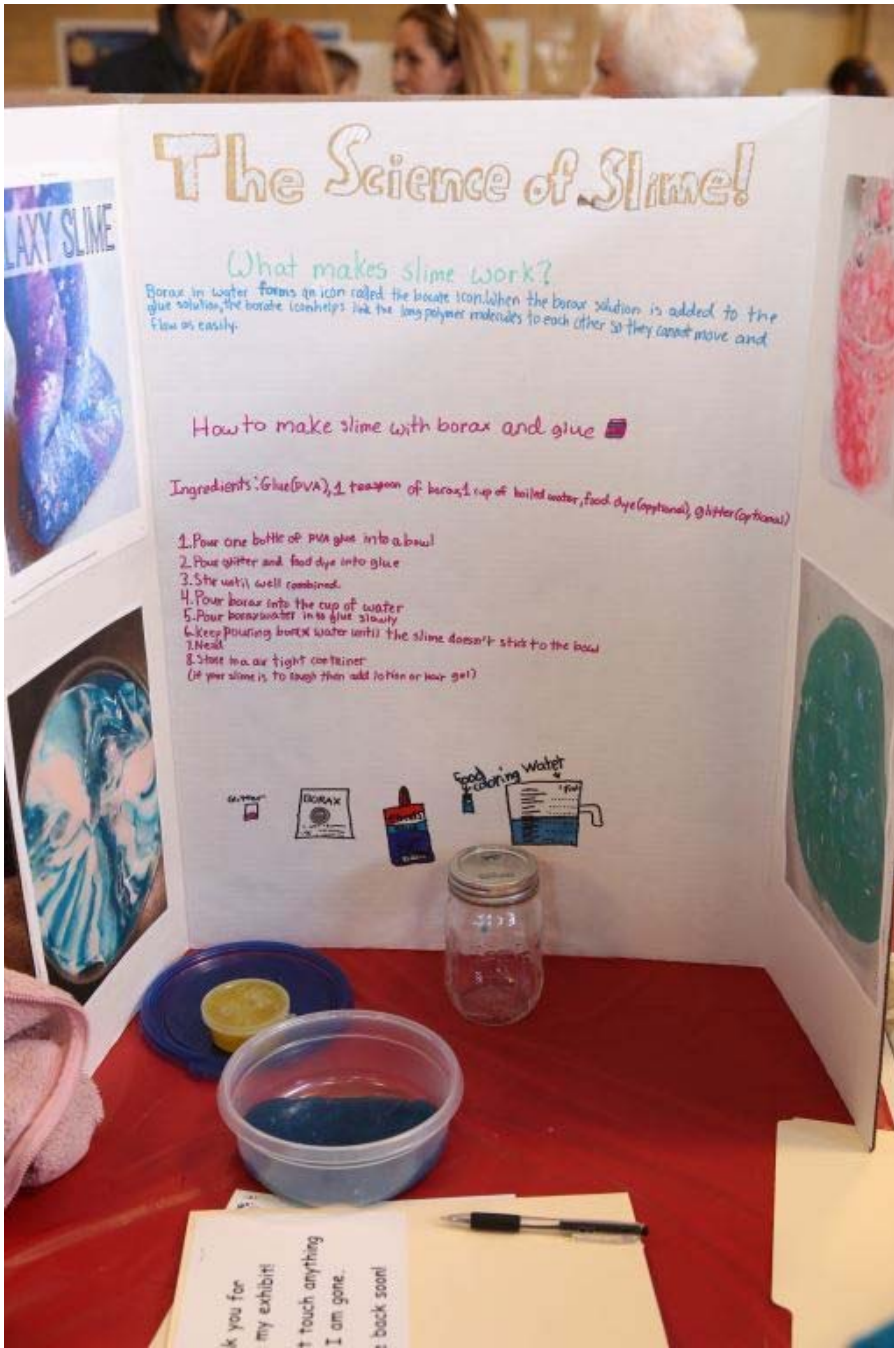 The Science of Slime!
LAXY SLIME
What makes slime work?
Borax in water forms an icon called the borate icon. When the borax solution is added to the
glue solution, the borate icon helps link the long polymer molecules to each other so they cannot move and
flow as easily.
How to make slime with borax and glue
Ingredients: Glue (PVA), 1 teaspoon of borax, 1 cup of boiled water, food dye (opptional), glitter (optional)
1. Pour one bottle of PVA glue into a bowl
2. Pour glitter and food dye into glue
3. Stir until well combined.
4. Pour borax into the cup of water
5. Pour borax water into glue slowly
6. Keep pouring borax water until the slime doesn't stick to the bowl
7. Nead
8. Store in a air tight container
(If your slime is to rough then add lotion or hair gel)
Glitter
BORAX
Food
coloring
Water
k you for
my exhibit!
t touch anything
I am gone.
e back soon!